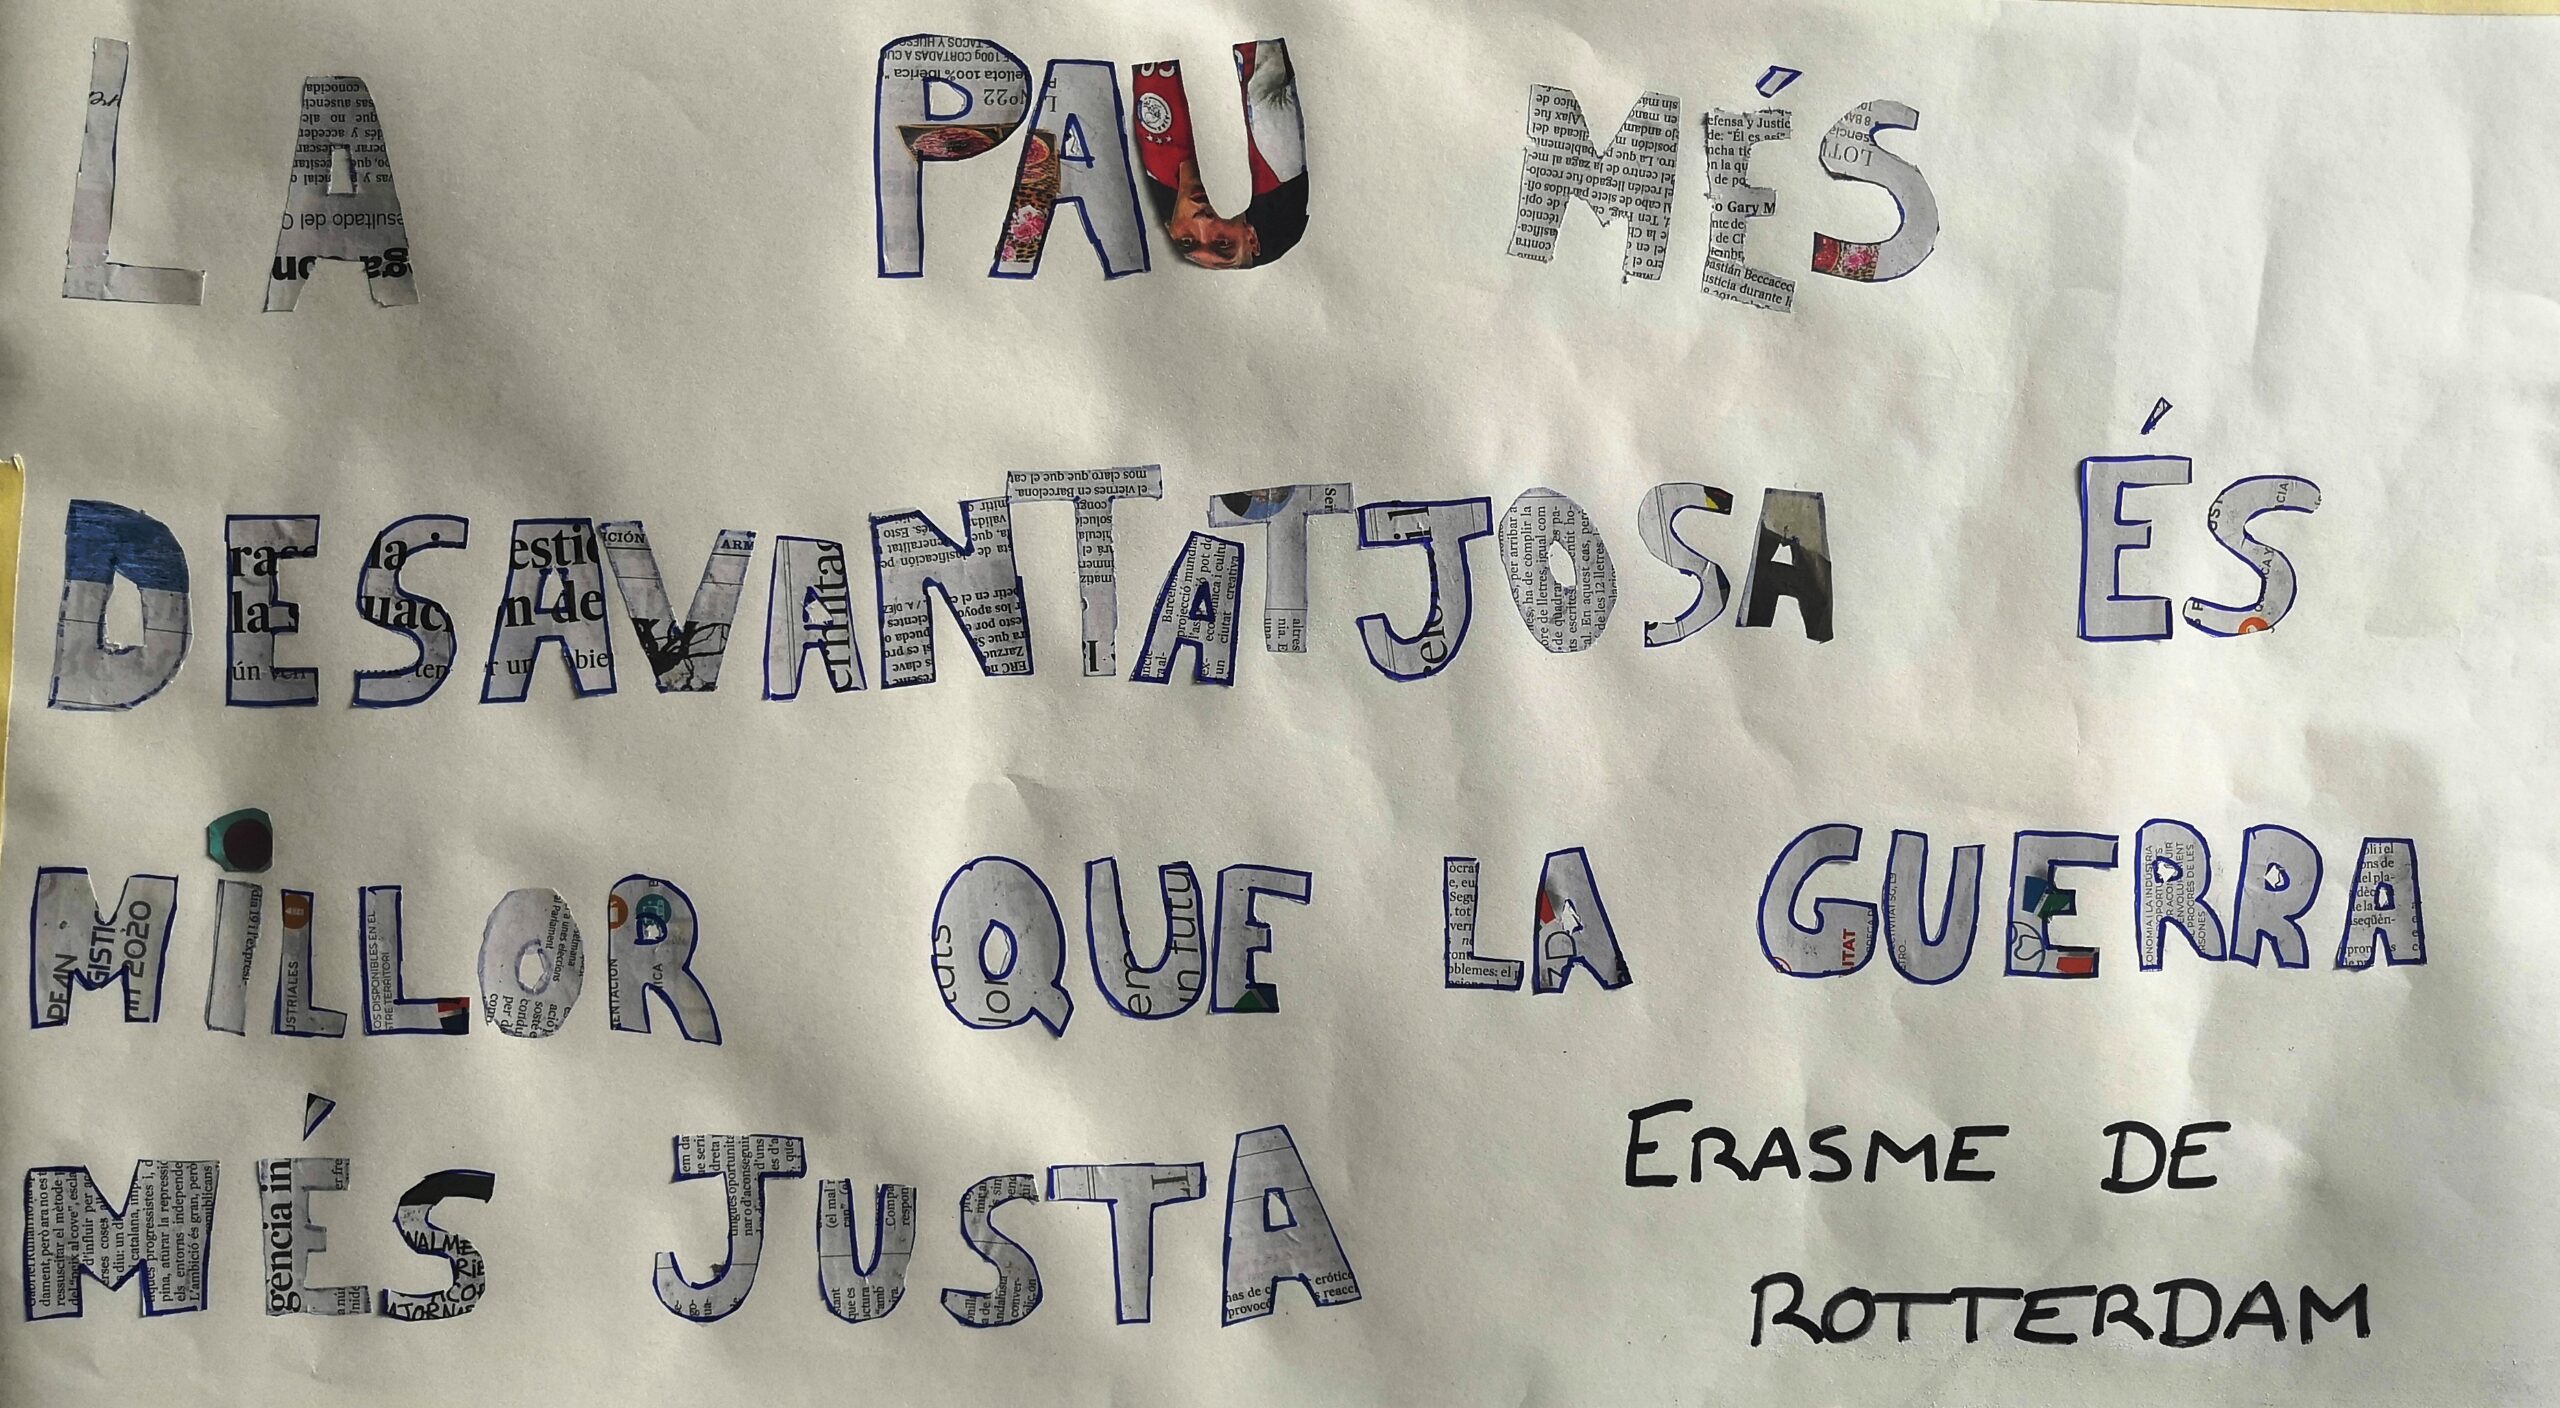 LA PAU MÉS
DESAVANTATJOSA ÉS
MiLLOR QUE LA GUERRA
MÉS JUSTA
ERASME DE
ROTTERDAM